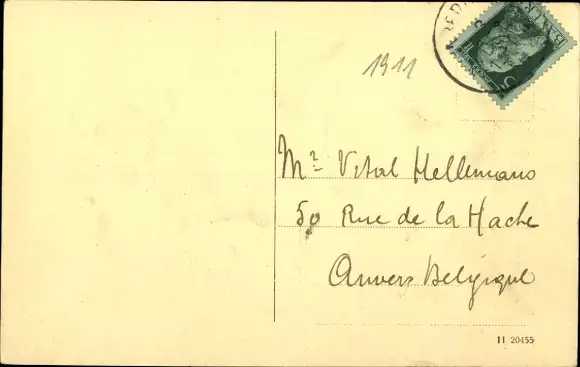 1911
Mr Vital Hellemans
50 Rue de la Hache
Anvers Belgique
11 20455